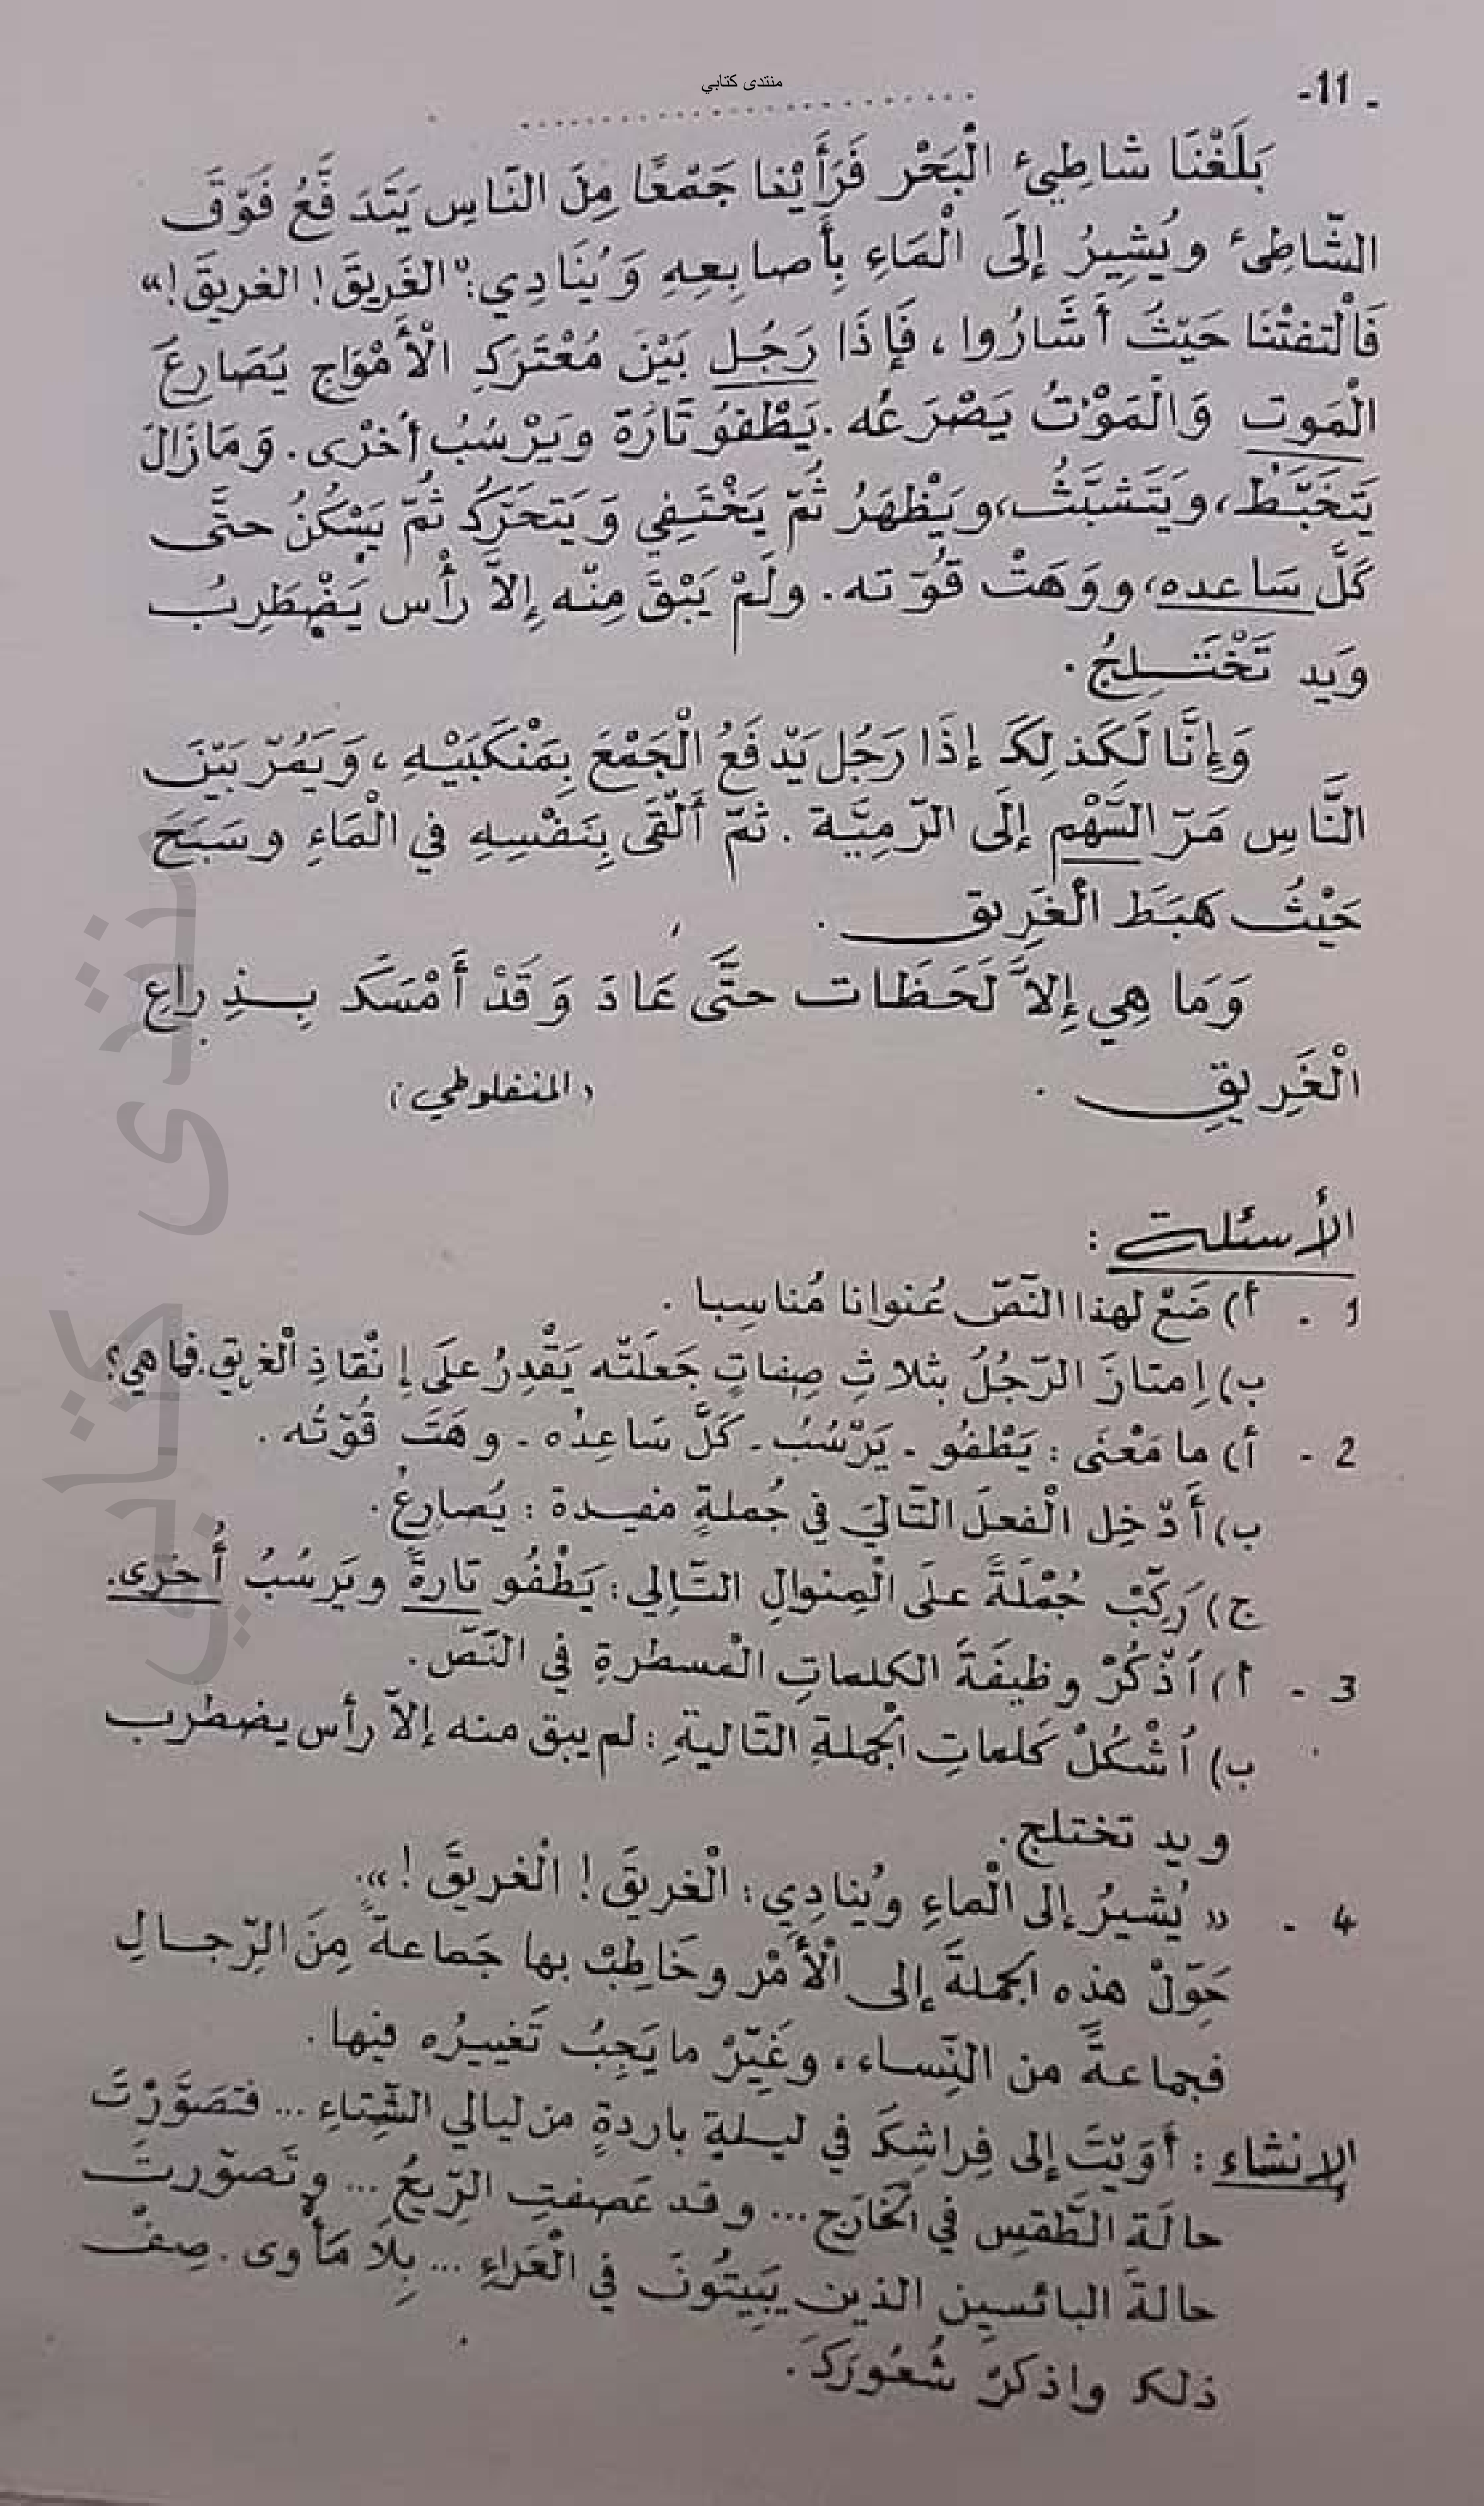 منتدى كتابي
- 11 -
بَلَغْنَا شاطِئَ الْبَحْرِ فَرَأَيْنا جَمْعًا مِنَ النَّاسِ يَتَدَفَّعُ فَوْقَ
الشَّاطِئ ويُشِيرُ إِلَى الْمَاءِ بِأَصابِعِهِ وَيُنَادِي: "الغَرِيقَ! الغريقَ!»
فَالْتفتْنا حَيْثُ أَشَارُوا، فَإِذَا رَجُل بَيْنَ مُعْتَرَكِ الْأَمْوَاجِ يُصَارِعُ
الْمَوت وَالْمَوْتُ يَصْرَعُه. يَطْفُو تَارَة ويَرْسُبُ أخرْى. وَمَازَالَ
يَتَخَبَّط، ويَتَشبَّثُ، ويَظْهَرُ ثُمّ يَخْتَفِي وَيَتحَرّكُ ثُمّ يَسْكُنُ حتَّى
كَلَّ سَاعده، ووَهَتْ قُوّته. ولَمْ يَبْقَ مِنْه إِلاَّ رأْس يَضْطَرِبُ
وَيد تَخْتَلِجُ.
وَإِنَّا لَكَذلِكَ إذَا رَجُل يَدْفَعُ الْجَمْعَ بِمَنْكَبَيْهِ، وَيَمُرّ بَيْنَ
النَّاسِ مَرّ السَّهْم إلَى الرّمِيَّة. ثُمّ ألْقَى بِنَفْسِهِ في الْمَاءِ وسَبَحَ
حَيْثُ هَبَطَ الْغَرِيق.
وَمَا هِي إِلاَّ لَحَظَات حتَّى عَادَ وَقَدْ أَمْسَكَ بِذِراعِ
الْغَرِيقِ. (المنفلوطي)
الأسئلة :
1 - أ) ضَعْ لهذا النَّصّ عُنوانا مُناسِبا.
ب) اِمتازَ الرّجُلُ بثلاثِ صِفاتٍ جَعَلَتْه يَقْدِرُ علَى إنْقاذِ الْغريق. فما هي؟
2 - أ) ما مَعْنَى : يَطْفُو - يَرْسُبُ - كَلَّ سَاعِدُه - وهَتَ قُوّتُه.
ب) أَدْخِل الْفعلَ التَّالِيَ في جُملةٍ مفيدة : يُصارِعُ.
ج) رَكِّبْ جُمْلَةً علَى الْمِنوالِ التَّالِي : يَطْفُو تارةً ويَرسُبُ أُخرى.
3 - أ) اُذْكُرْ وظيفَةَ الكلماتِ الْمسطرةِ في النَّصّ.
ب) اُشْكُلْ كَلماتِ الْجملةِ التَّاليةِ : لم يبق منه إلاّ رأس يضطرب
ويد تختلج.
4 - « يُشيرُ إلى الْماءِ ويُنادِي : الْغريقَ ! الْغريقَ ! ».
حَوّلْ هذه الجملةَ إلى الْأَمْر وخَاطِبْ بها جَماعةً مِنَ الرّجالِ
فجماعةً من النِّساء، وغَيِّرْ ما يَجِبُ تَغييرُه فيها.
الإنشاء : أَوَيْتَ إلى فِراشِكَ في ليلةٍ باردةٍ من ليالي الشِّتاءِ ... فتصَوَّرْتَ
حالةَ الطّقسِ في الْخَارَج ... وقد عَصفتِ الرّيحُ ... وتَصوّرتَ
حالةَ البائسينِ الذين يَبِيتُونَ في الْعَراءِ ... بِلاَ مَأْوى. صِفْ
ذلك واذكرْ شُعُورَكَ.
منتدى كتابي